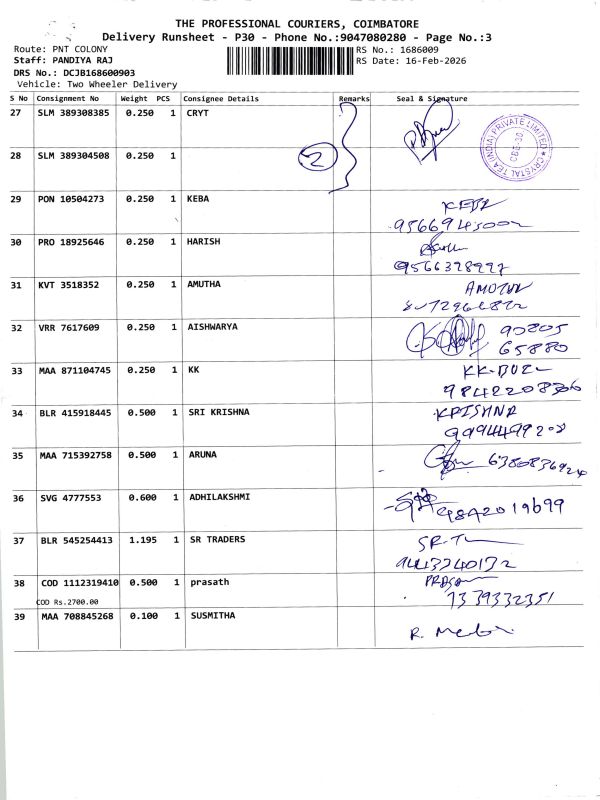 THE PROFESSIONAL COURIERS, COIMBATORE
Delivery Runsheet - P30 - Phone No.:9047080280 - Page No.:3
Route: PNT COLONY
RS No.: 1686009
Staff: PANDIYA RAJ
RS Date: 16-Feb-2026
DRS No.: DCJB168600903
Vehicle: Two Wheeler Delivery
S No Consignment No Weight PCS Consignee Details Remarks Seal & Signature
27 SLM 389308385 0.250 1 CRYT
CRYSTAL TEA (INDIA) PRIVATE LIMITED
2
28 SLM 389304508 0.250 1
29 PON 10504273 0.250 1 KEBA
30 PRO 18925646 0.250 1 HARISH
9566328997
31 KVT 3518352 0.250 1 AMUTHA
32 VRR 7617609 0.250 1 AISHWARYA 90805
65880
33 MAA 871104745 0.250 1 KK
34 BLR 415918445 0.500 1 SRI KRISHNA KRISHNA
35 MAA 715392758 0.500 1 ARUNA 6380836924
36 SVG 4777553 0.600 1 ADHILAKSHMI 9842019699
37 BLR 545254413 1.195 1 SR TRADERS
9443240132
38 COD 1112319410 0.500 1 prasath
COD Rs.2700.00 7339332351
39 MAA 708845268 0.100 1 SUSMITHA